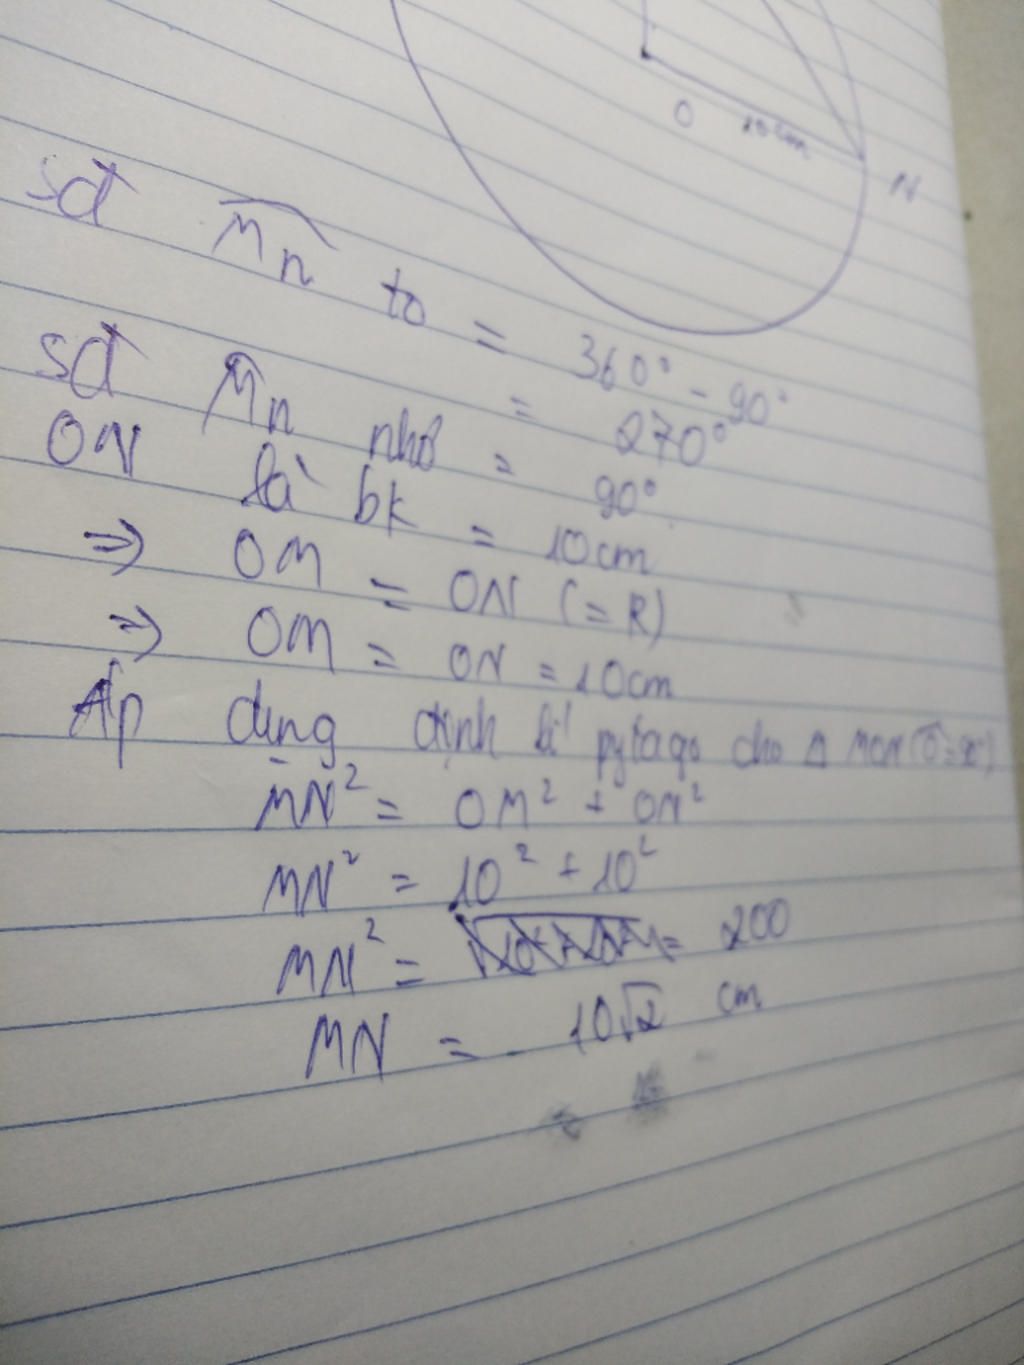 O 10cm
N
sđ Mn to = 360° - 90°
= 270°
sđ Mn nhỏ = 90°
ON là bk = 10cm
=> OM = ON (= R)
=> OM = ON = 10cm
Áp dụng định lí pytago cho Δ MON (O = 90°)
MN² = OM² + ON²
MN² = 10² + 10²
MN² = 200
MN = 10√2 cm